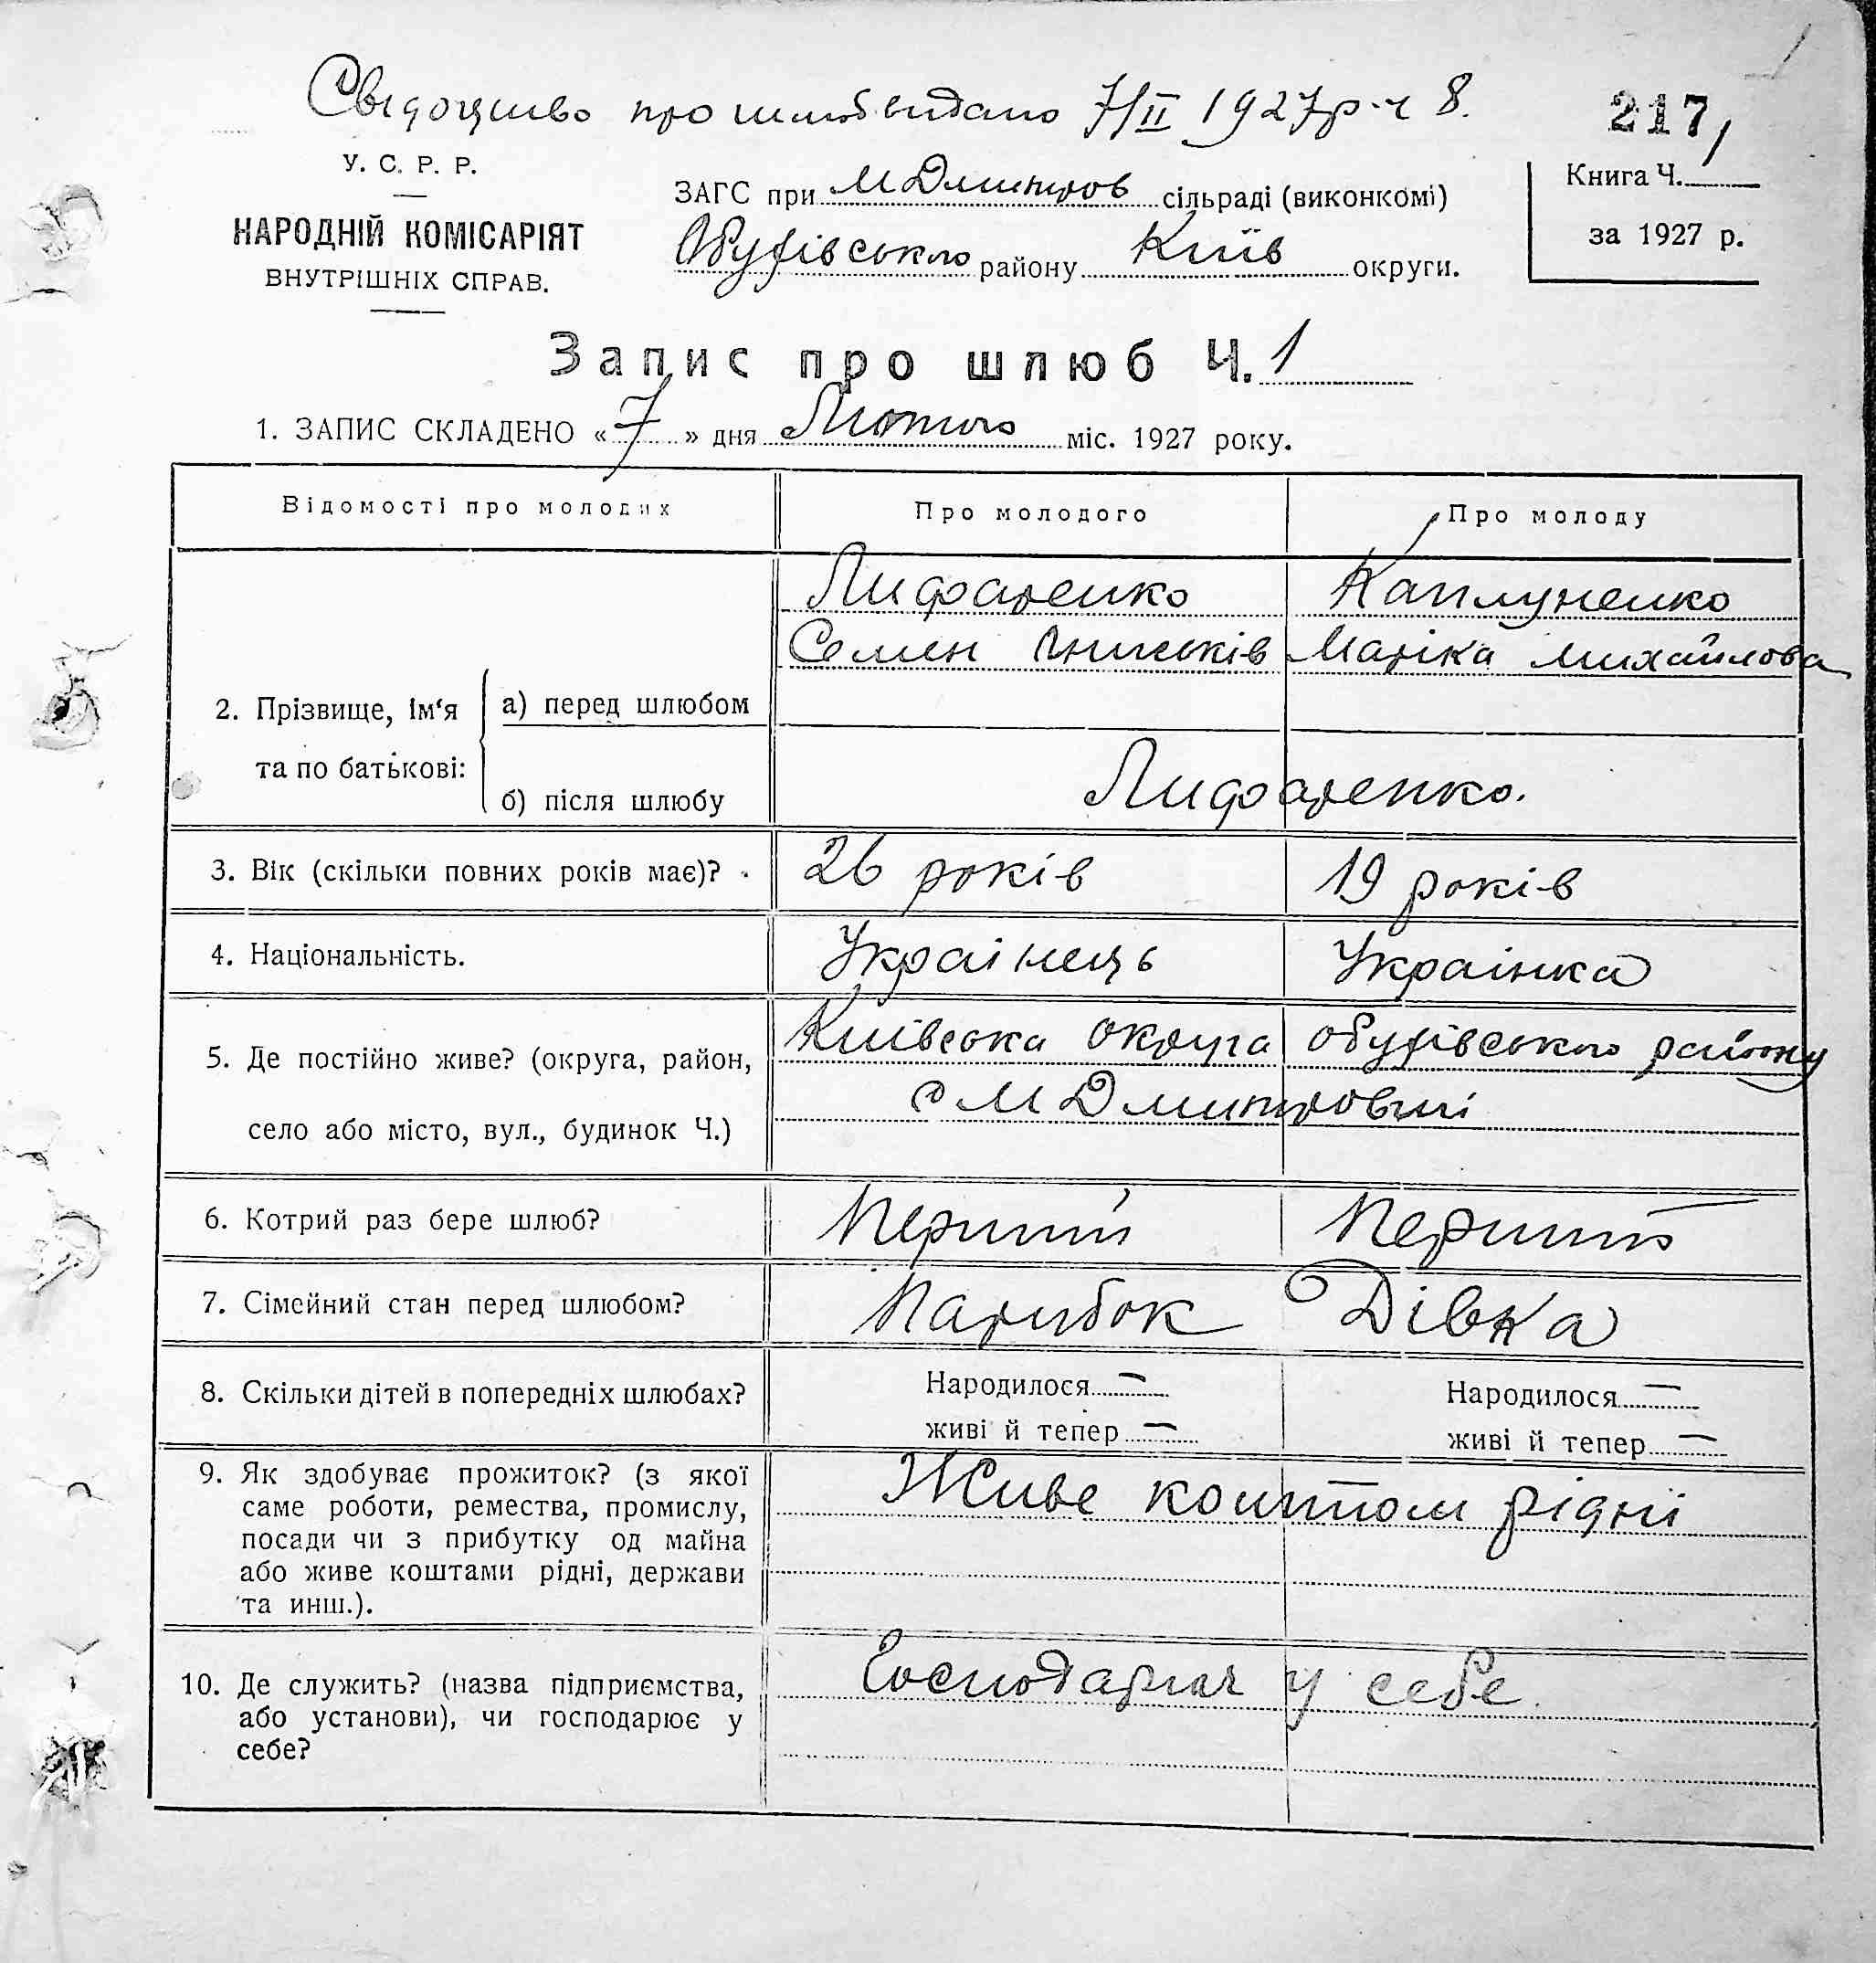 Свідоцтво про шлюб видано 7/II 1927 р. ч 8.
217
У. С. Р. Р.
НАРОДНІЙ КОМІСАРІЯТ
ВНУТРІШНІХ СПРАВ.
ЗАГС при М Дмитров сільраді (виконкомі)
Обухівського району Київ округи.
Книга Ч.
за 1927 р.
Запис про шлюб Ч. 1
1. ЗАПИС СКЛАДЕНО «7» дня Лютого міс. 1927 року.
Відомості про молодих Про молодого Про молоду
Лифаренко Каплуненко
Семен Марика Михайлова
2. Прізвище, Ім'я та по батькові:
а) перед шлюбом
б) після шлюбу
Лифаренко.
3. Вік (скільки повних років має)? 26 років 19 років
4. Національність. Украінець Украінка
5. Де постійно живе? (округа, район, Київська округа обухівського району
село або місто, вул., будинок Ч.) с М Дмитровці
6. Котрий раз бере шлюб? Перший Перший
7. Сімейний стан перед шлюбом? Парубок Дівка
8. Скільки дітей в попередніх шлюбах? Народилося — Народилося —
живі й тепер — живі й тепер —
9. Як здобуває прожиток? (з якої Живе коштом рідні
саме роботи, ремества, промислу,
посади чи з прибутку од майна
або живе коштами рідні, держави
та инш.).
10. Де служить? (назва підприємства, Господарює у себе.
або установи), чи господарює у
себе?